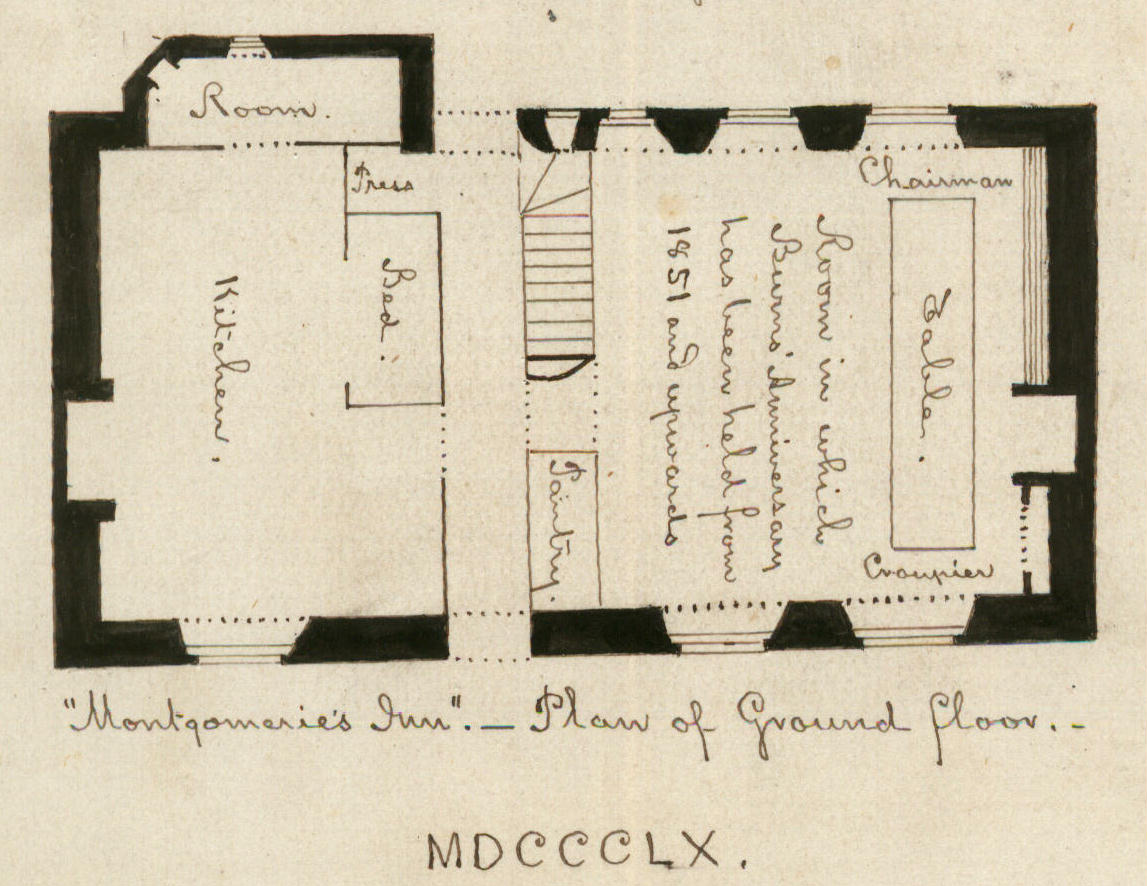 Room.
Press
Bed.
Kitchen.
Paintry.
Room in which
Burns' Anniversary
has been held from
1851 and upwards
Chairman
Table.
Croupier
"Montgomerie's Inn". — Plan of Ground floor. -
MDCCCLX.